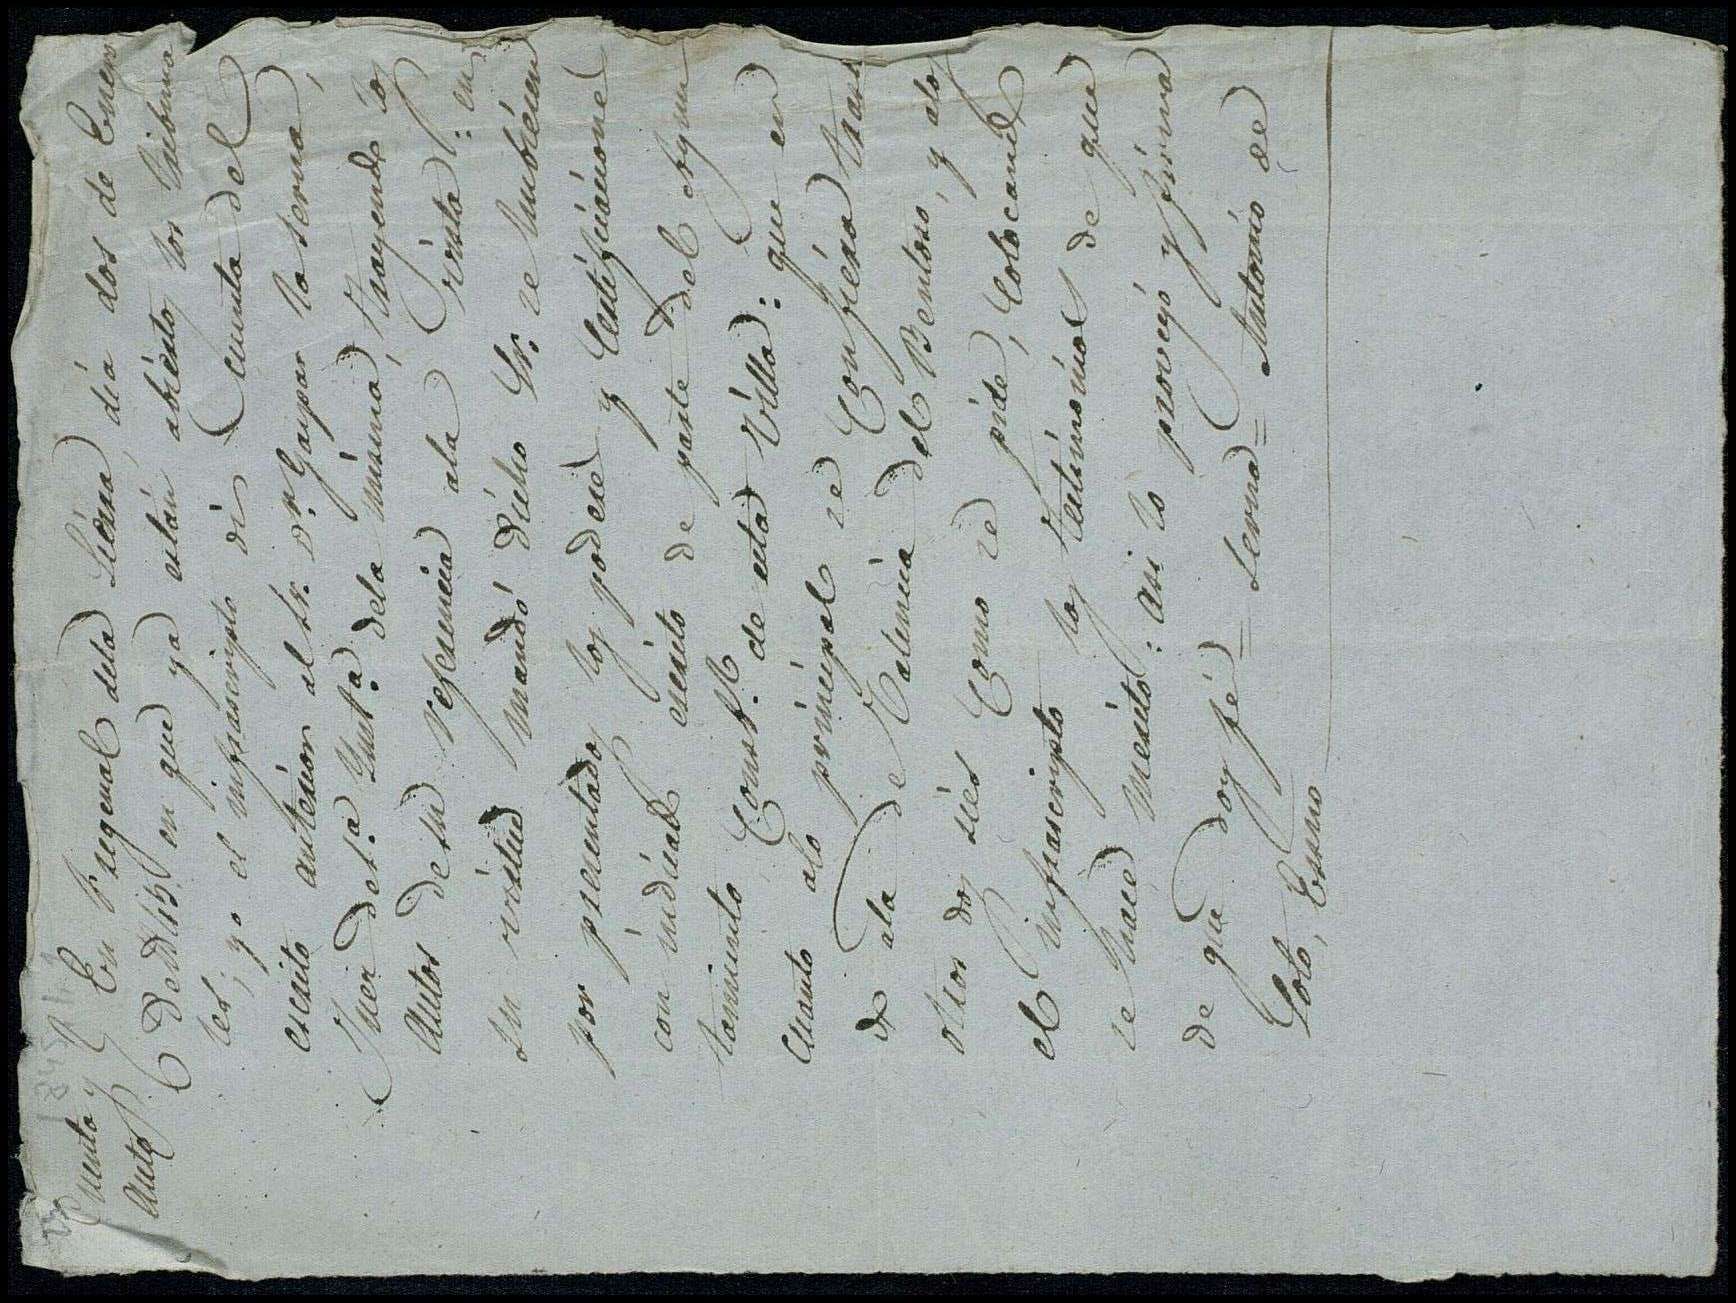 Cuenta y
Auto
1845
En Fregenal dela Sierra, día dos de Enero
de 1845 en que ya están abiertos los tribuna
les; yo el infrascripto di Cuenta del
escrito anterior al Sr. Dn. Gaspar la serna,
Juez de 1.a Inst.a dela misma, trayendo los
Autos de su referencia ala vista: en
su virtud mandó dicho Sr. se hubiesen
por presentados los poderes y Certificaciones
con inducidas escrito de parte del Ayun
tamiento Const.l de esta Villa: que en
cuanto alo principal se Confiera tras
do ala de Valencia del Bentoso, y alos
otros dos sies Como se pide, Colocando
el infrascripto los testimonios de que
se hace mencito: Asi lo proveyó y firma
de que doy fé = Serna = Antonio de
Soto, Essno